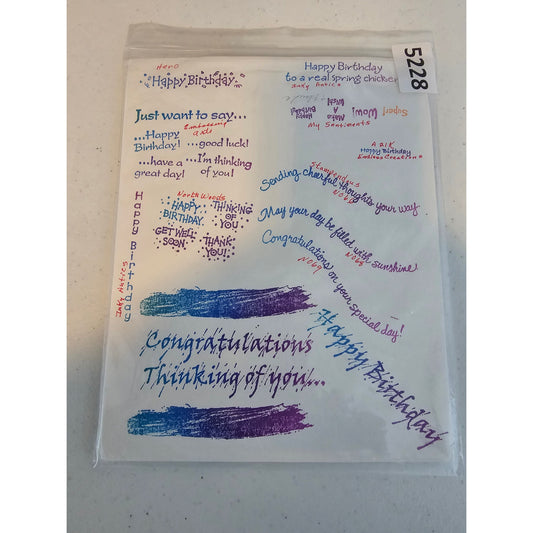 5228
Hero
Happy Birthday
Happy Birthday
to a real spring chicken
Inky Antics
Just want to say...
Embossing arts
...Happy Birthday!
...good luck!
...have a great day!
...I'm thinking of you!
Happy Birthday!
Make A Wish!
Wow!
Super!
My Sentiments
A 21K
Happy Birthday
Endless Creations
Stampendous
Sending cheerful thoughts your way
May your day be filled with sunshine!
N068
Congratulations on your special day!
N069
Happy Birthday
Inky Antics
North Woods
HAPPY BIRTHDAY
THINKING OF YOU
GET WELL SOON
THANK YOU!
Congratulations
Thinking of you...
Happy Birthday